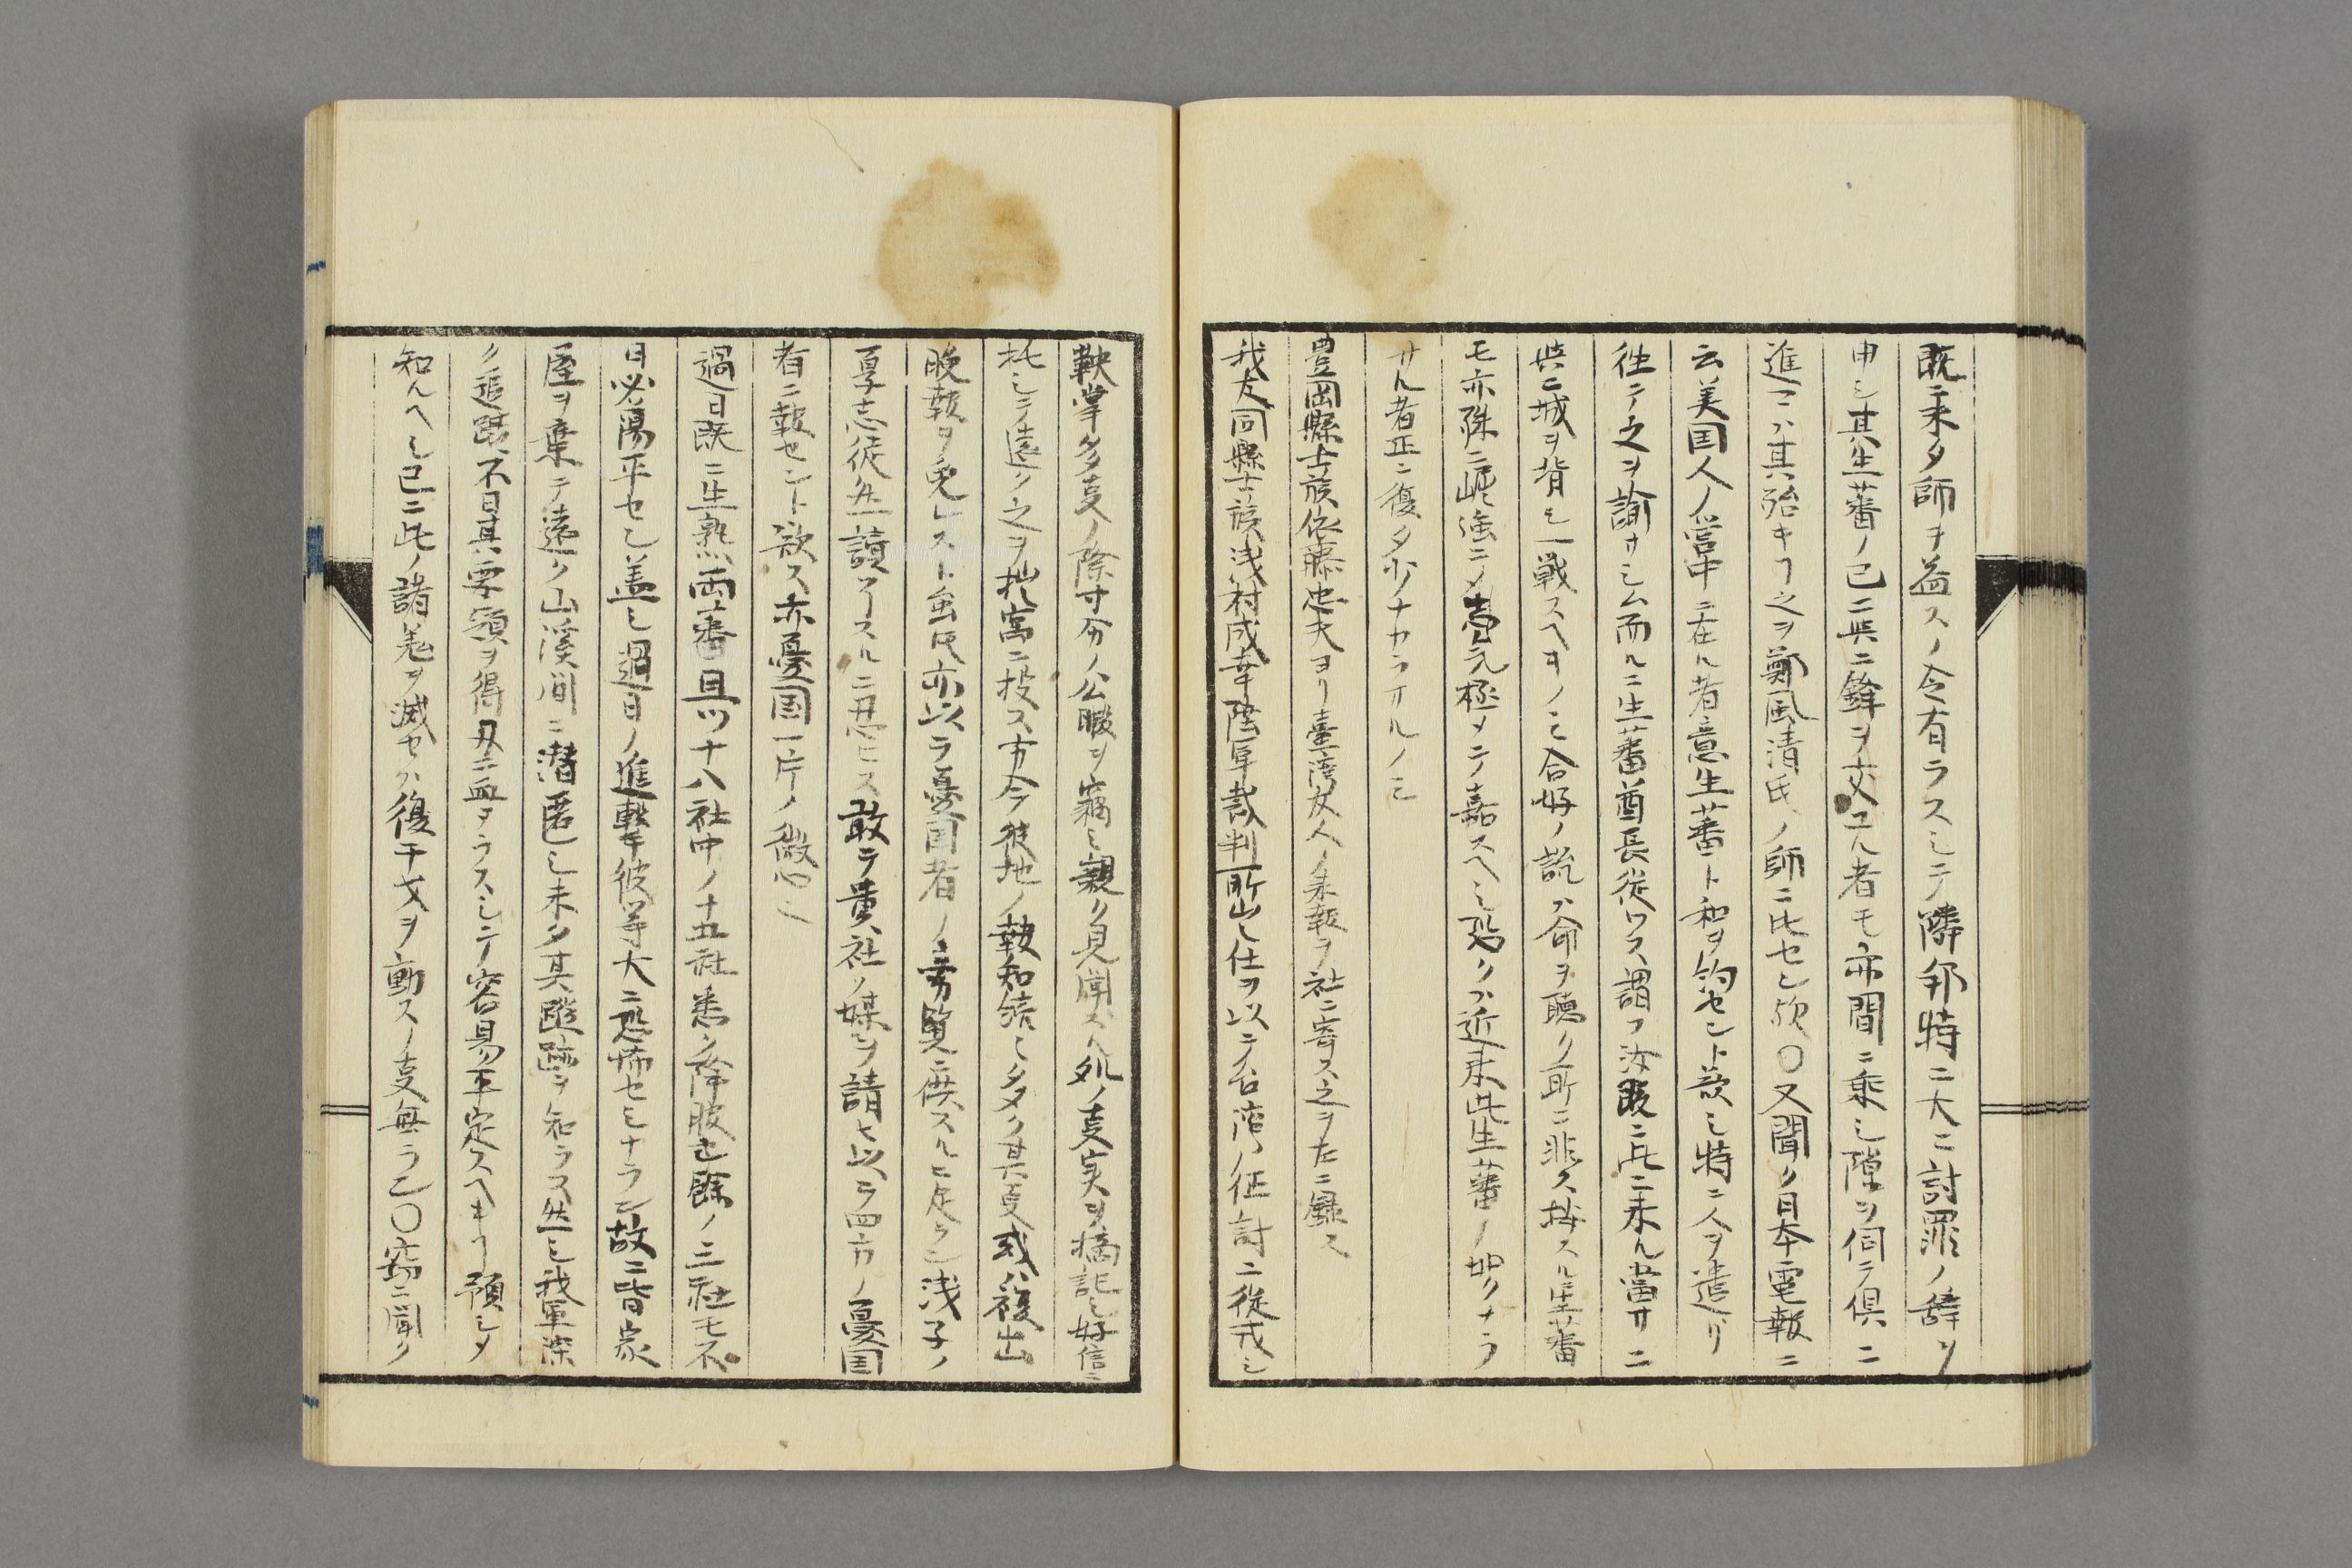 既ニ未タ師ヲ益スノ令有ラスシテ隣邦特ニ大ニ討罪ノ辞ヲ
申シ其生蕃ノ已ニ與ニ鋒ヲ交ユル者モ亦間ニ乗シ隙ヲ伺テ倶ニ
進マハ其殆キヿ之ヲ鄭風清氏ノ師ニ比セン欤〇又聞ク日本電報ニ
云美国人ノ営中ニ在ル者意生蕃ト和ヲ約セント欲シ特ニ人ヲ遣リ
往テ之ヲ諭サシム而ルニ生蕃酋長従ハス謂フ汝既ニ此ニ来ル當サニ
與ニ城ヲ背シ一戦スヘキノミ合好ノ説ハ命ヲ聴ク所ニ非ス按スルニ生蕃
モ亦殊ニ崛強ニメ極メテ嘉スヘシ恐クハ近来此生蕃ノ如クナラ
サル者正ニ復タ少ナカラサルノミ
豊岡縣士族佐藤忠夫ヨリ臺湾友人ノ来報ヲ社ニ寄ス之ヲ左ニ録ス
我友同縣士族浅村成幸陸軍裁判所ノ仕ヲ以テ台湾ノ征討ニ従戎シ
鞅掌多夛ノ際寸分ノ公暇ヲ竊ミ親ク見聞スル処ノ事実ヲ摘記シ好信ニ
托シテ遠ク之ヲ拙寓ニ投ス方今彼地ノ報知績シタク其事或ハ複出
晩報ヲ免レスト虽氏亦以テ憂国者ノ旁覧ニ供スルニ足ラン浅子ノ
厚志徒然読了スルニ忍ヒス敢テ貴社ノ媒ヲ請ヒ以テ四方ノ憂国
者ニ報セント欲ス亦憂国一片ノ微心ミ
過日既ニ生熟両蕃具ツ十八社中ノ十五社悉ク降服シ餘ノ三社モ不
日必陽平セン盖シ過日ノ進撃彼等大ニ恐怖セシナラン故ニ皆家
屋ヲ棄テ遠ク山渓間ニ潜匿シ未タ其蹤跡ヲ知ラス然シ我軍深
ク追蹤不日其要領ヲ得刃ニ血ヌラスシテ容易ク平定スヘキヿ預シメ
知ルヘシ已ニ此ノ諸羌ヲ滅セハ復干戈ヲ動スノ事無ラン〇窃ニ聞ク